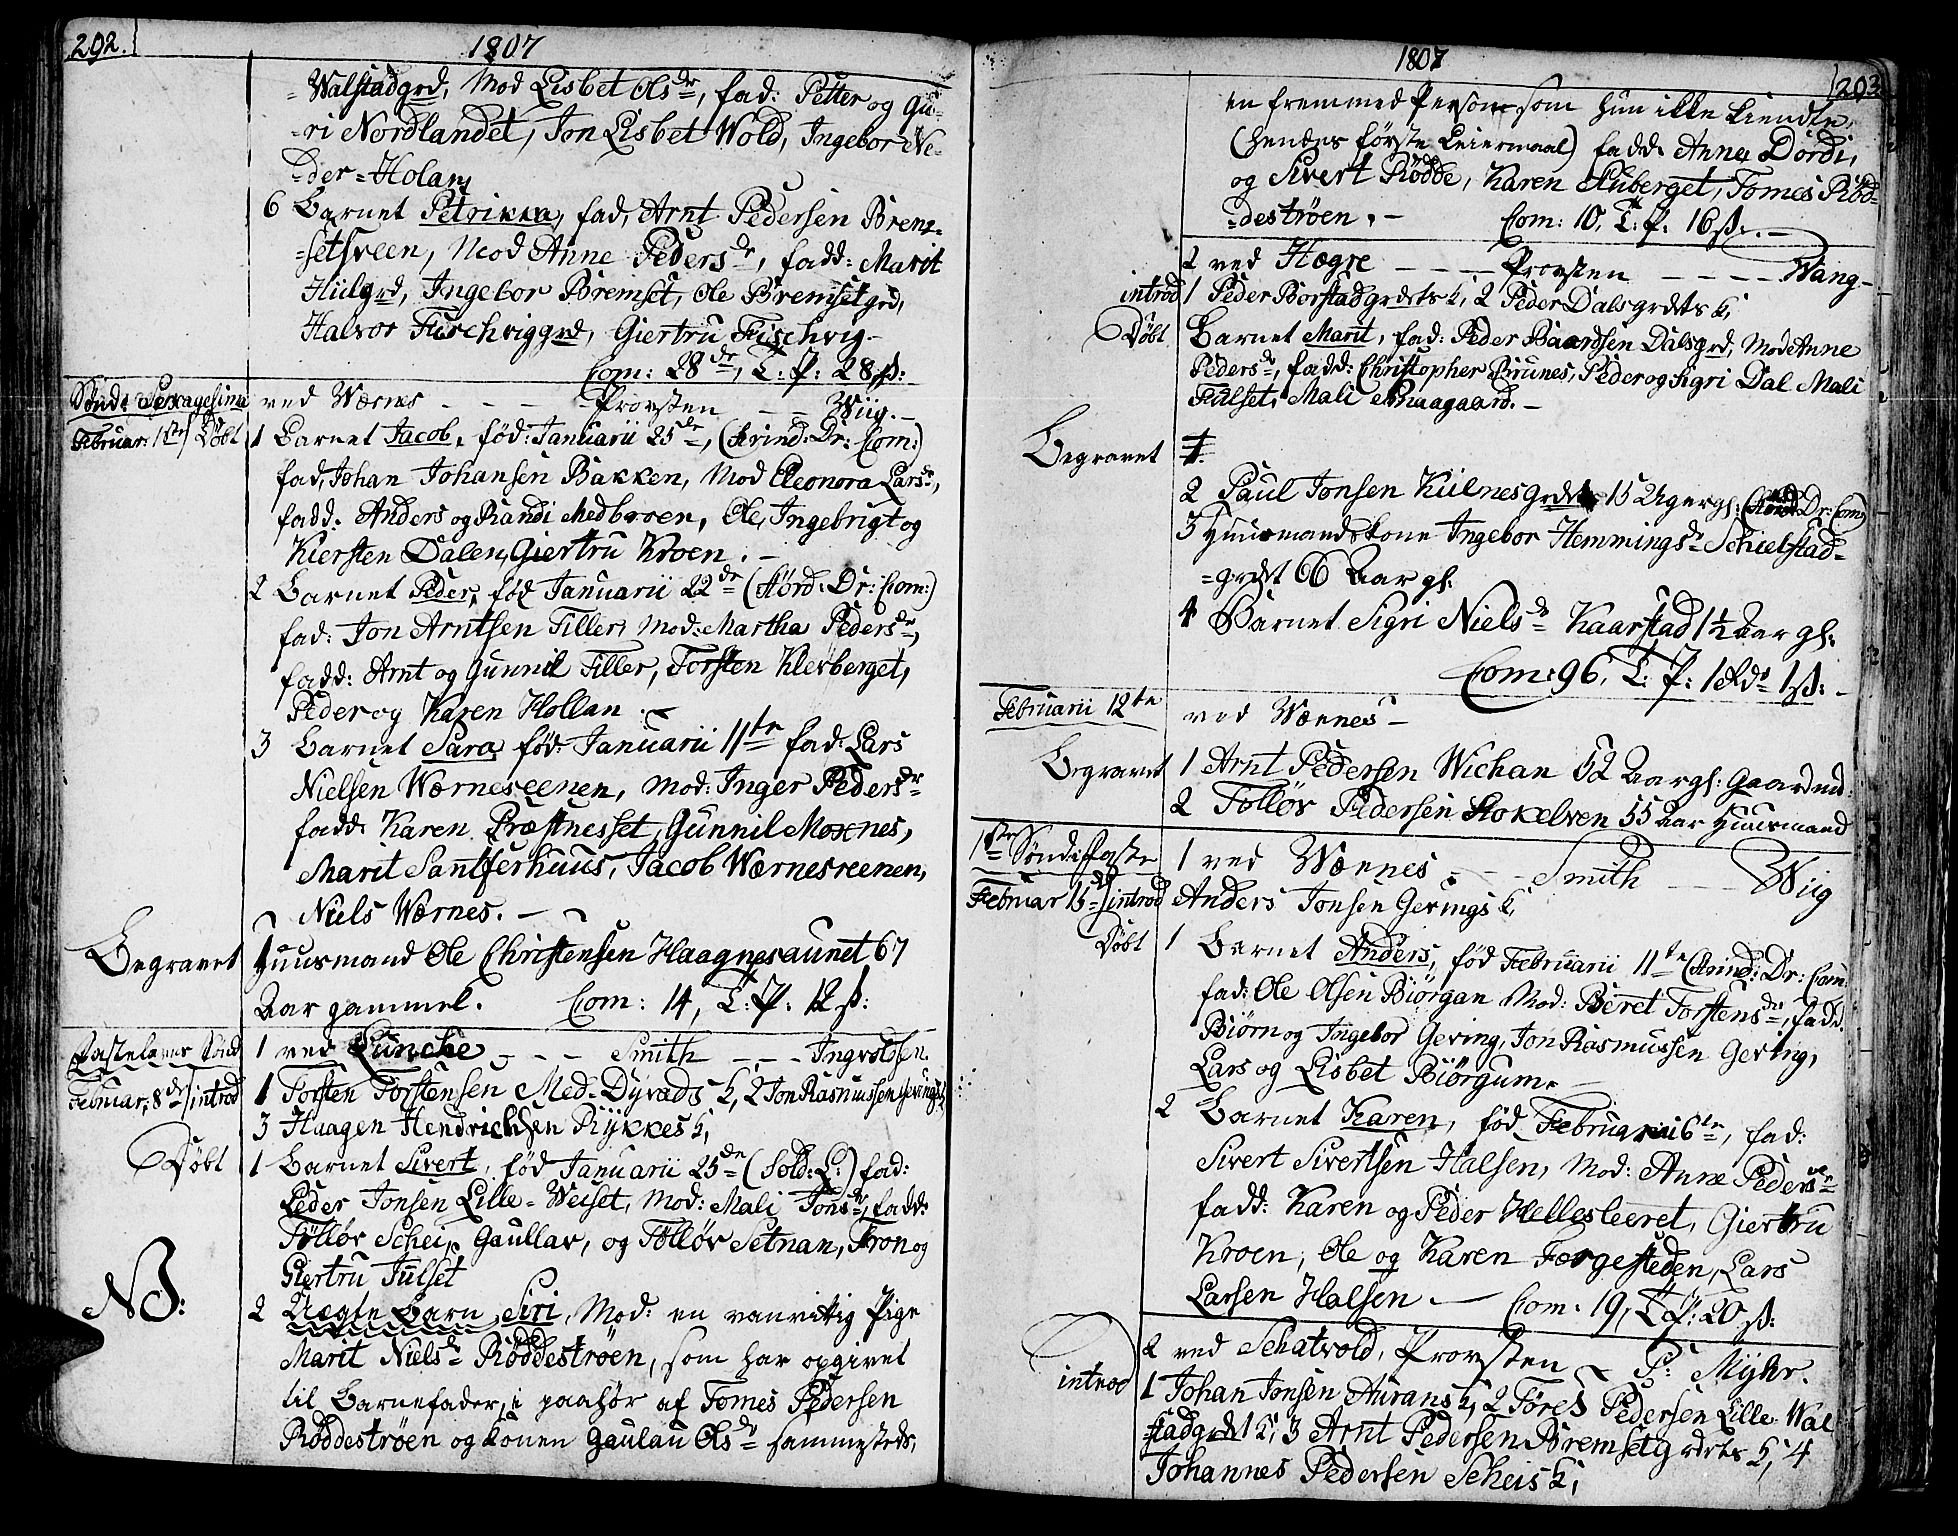 292.
1807
- Walstadgrd, Mod Lisbet Olsdr, fad: Petter og Gu-
-ri Nordlandet, Jon Lisbet Wold, Ingebor Ne-
-der-Holan,
6 Barnet Petrikka, fad, Arnt Pedersen Brem-
-setsveen, Mod Anne Pedersdr, fadd: Marit
Hiilgrd, Ingebor Bremset, Ole Bremsetgrd,
Halvor Fischviggrd, Giertru Fischvig.-
Com: 28de, T: P: 28 ß:
Sønd: Sexagesima ved Wærnes - - - Provsten - - - Wiig.-
Februar: 1ste Døbt 1 Barnet Jacob, fød: Januarii 25de, (Trind: Dr: Com:)
fad, Johan Johansen Bakken, Mod Eleonora Larsdr,
fadd. Anders og Randi Medbroen, Ole, Ingebrigt og
Kiersten Dalen, Giertru Kroen.-
2 Barnet Peder, fød Januarii 22de (Størd: Dr: Com:)
fad: Jon Arntsen Tiller, Mod: Martha Pedersdr,
fadd: Arnt og Gunnil Tiller, Torsten Klevberget,
Peder og Karen Hollan.-
3 Barnet Sara, fød: Januarii 11te fad: Lars
Nielsen Wærnesreenen, Mod: Inger Pedersdr
fadd: Karen Præstnesset, Gunnil Moxnes,
Marit Santferhuus, Jacob Wærnesreenen,
Niels Wærnes.-
Begravet 1 Huusmand Ole Christensen Haagnesaunet 67
Aar gammel. Com: 14, T: P: 12 ß:
Fastelavns Sønd 1 ved Lunche - - - Smith - - - Ingvoldsen.
Februar, 8de introd 1 Torsten Torstensen Med-Dyvads K, 2 Jon Rasmussen Gevings K
3 Haagen Hendrichsen Rykkes K,
Døbt 1 Barnet Sivert, fød Januarii 25de (Sold: L:) fad:
Peder Jonsen Lille-Weiset, Mod: Mali Jonsdr, fadd:
Tølløv Schei, Gaullav, og Tølløv Setnan, Tron og
Giertru Julset
NB: 2 Uægte Barn Siri, Mod: en vanvittig Pige
Marit Nielsdr Røddestrøen, som har opgivet
til Barnefader, i paahør af Tomes Pedersen
Røddestrøen og Konen Gaulau Olsdr sammesteds,
1807
293
en fremmed Person som hun ikke kiendte,
(hendes første Leiermaal) fadd: Anne, Dordi,
og Sivert Rødde, Karen Auberget, Tomes Rød-
-destrøen.- Com: 10, T: P: 16 ß:.-
2 ved Hegre - - - Provsten - - - - Wang-
introd 1 Peder Borstadgrdets K, 2 Peder Dalsgrdets K,
Døbt Barnet Marit, fad: Peder Baardsen Dalsgrd, Mod Anne
Pedersdr, fadd: Christopher Brunes, Peder og Sigri Dal Mali
Fulset, Mali Præstegaard.-
Begravet 1
2 Paul Jonsen Kiilnesgrdet 15 Uger gl: (Størd: Dr: Com)
3 Huusmandskone Ingebor Hemmingsdr Schielstad-
-grdet 66 Aar gl:
4 Barnet Sigri Nielsdr Kaarstad 1½ Aar gl:
Com: 96, T: P: 1 Rdr 1 ß:-
Februarii 12te ved Wærnes-
Begravet 1 Arnt Pedersen Wichan 52 Aar gl: Gaardmd:
2 Tølløv Pedersen Stokelven 55 Aar Huusmand
1ste Sønd: i Faste 1 ved Wærnes - - Smith - - - Wiig
Februar 15de introd Anders Jonsen Gevings K,
Døbt 1 Barnet Anders, fød Februarii 11te (Trind: Dr: Com:
fad: Ole Olsen Biörgan Mod: Beret Torstensdr, fadd.
Biørn og Ingebor Geving, Jon Rasmussen Geving,
Lars og Lisbet Biørgum.-
2 Barnet Karen, fød Februarii 6te, fad:
Sivert Sivertsen Halsen, Mod: Anne Pedersdr
fadd: Karen og Peder Hellesleeret, Giertru
Kroen, Ole og Karen Færgesteden, Lars
Larsen Halsen.- Com: 19, T: P: 20 ß:
2 ved Schatvold, Provsten - P: Myhr.
introd 1 Johan Jonsen Aurans K, 2 Töres Pedersen Lille-Wal
-stadgrdet K, 3 Arnt Pedersen Bremsetgrdets K, 4
Johannes Pedersen Scheis K,